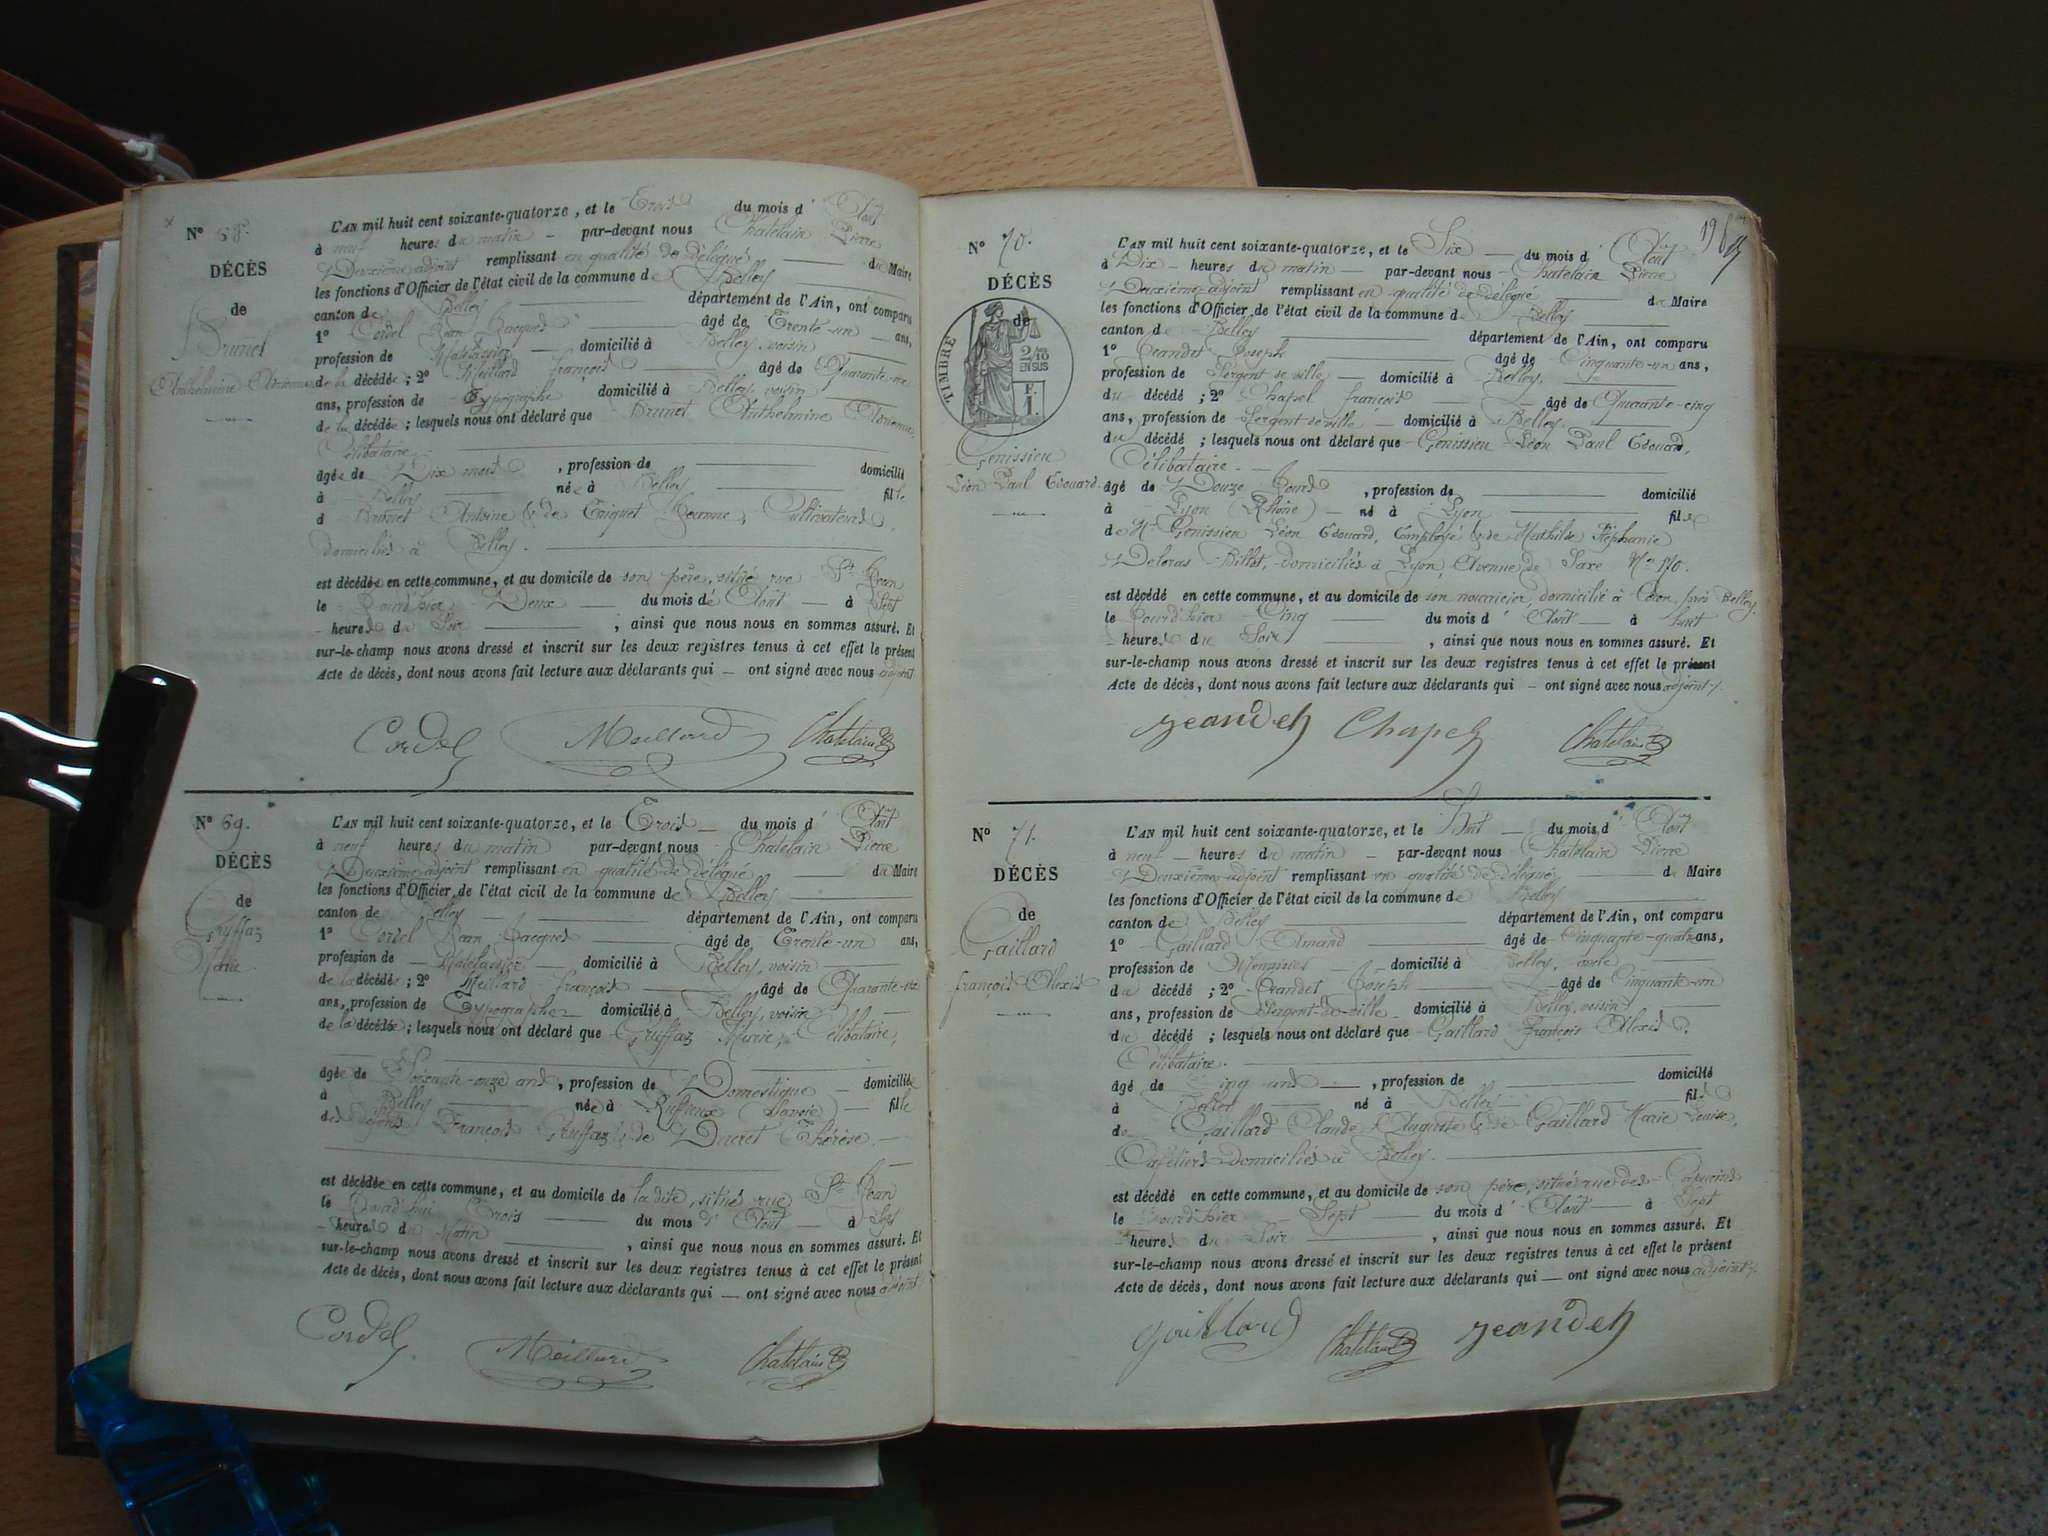 N° 68.
DÉCÈS
de
Brunet
Anthelmine
L'AN mil huit cent soixante-quatorze, et le Trois du mois d'Août
à neuf heures du matin — par-devant nous Chatelain Pierre
Deuxième adjoint remplissant en qualité de délégué du Maire
les fonctions d'Officier de l'état civil de la commune de Belley
canton de Belley département de l'Ain, ont comparu
1° Cordel Jean Jacques âgé de Trente-un ans,
profession de Matelassier domicilié à Belley, voisin
de la décédée ; 2° Meillard François âgé de Quarante-six
ans, profession de Typographe domicilié à Belley, voisin
de la décédée ; lesquels nous ont déclaré que Brunet Anthelmine
Célibataire
âgée de Dix mois , profession de domicilié
à Belley née à Belley fille
d Brunet Antoine & de Jeanne, Cultivateurs,
domiciliés à Belley.
est décédée en cette commune, et au domicile de son père, situé rue St Jean
le Jourd'hier Deux du mois de Août à Sept
heures du Soir , ainsi que nous nous en sommes assuré. Et
sur-le-champ nous avons dressé et inscrit sur les deux registres tenus à cet effet le présent
Acte de décès, dont nous avons fait lecture aux déclarants qui — ont signé avec nous adjoint
Cordel Meillard Chatelain
N° 69.
DÉCÈS
de
Gruffaz
Marie
L'AN mil huit cent soixante-quatorze, et le Trois du mois d'Août
à neuf heures du matin par-devant nous Chatelain Pierre
Deuxième adjoint remplissant en qualité de délégué du Maire
les fonctions d'Officier de l'état civil de la commune de Belley
canton de Belley département de l'Ain, ont comparu
1° Cordel Jean Jacques âgé de Trente-un ans,
profession de Matelassier domicilié à Belley, voisin
de la décédée ; 2° Meillard François âgé de Quarante-six
ans, profession de Typographe domicilié à Belley, voisin
de la décédée ; lesquels nous ont déclaré que Gruffaz Marie, Célibataire,
âgée de Soixante-onze ans, profession de Domestique domiciliée
à Belley née à Ruffieux (Savoie) fille
des défunts François Gruffaz & de Ducret Thérèse.
est décédée en cette commune, et au domicile de la dite, situé rue St Jean
le Jourd'hui Trois du mois d'Août à Sept
heures du Matin , ainsi que nous nous en sommes assuré. Et
sur-le-champ nous avons dressé et inscrit sur les deux registres tenus à cet effet le présent
Acte de décès, dont nous avons fait lecture aux déclarants qui — ont signé avec nous adjoint
Cordel Meillard Chatelain
N° 70.
DÉCÈS
de
TIMBRE
2/10
EN SUS
F.
1.
Genissieu
Léon Paul Edouard.
L'AN mil huit cent soixante-quatorze, et le Six du mois d'Août
à Dix heures du matin — par-devant nous Chatelain Pierre
Deuxième adjoint remplissant en qualité de délégué du Maire
les fonctions d'Officier de l'état civil de la commune de Belley
canton de Belley département de l'Ain, ont comparu
1° Jeandet Joseph âgé de Cinquante-un ans,
profession de Sergent de ville domicilié à Belley,
du décédé ; 2° Chapel François âgé de Quarante-cinq
ans, profession de Sergent de ville domicilié à Belley
du décédé ; lesquels nous ont déclaré que Genissieu Léon Paul Edouard,
Célibataire.
âgé de Douze Jours , profession de domicilié
à Lyon (Rhône) né à Lyon fils
de Mr Genissieu Léon Edouard, Employé & de Mathilde Stéphanie
Billet, domiciliés à Lyon, Avenue de Saxe N° 170.
est décédé en cette commune, et au domicile de son nourricier, domicilié à près Belley.
le Jourd'hier Cinq du mois d'Août à huit
heures du Soir , ainsi que nous nous en sommes assuré. Et
sur-le-champ nous avons dressé et inscrit sur les deux registres tenus à cet effet le présent
Acte de décès, dont nous avons fait lecture aux déclarants qui — ont signé avec nous adjoint
Jeandet Chapel Chatelain
N° 71.
DÉCÈS
de
Gaillard
François Alexis
L'AN mil huit cent soixante-quatorze, et le Huit du mois d'Août
à neuf heures du matin — par-devant nous Chatelain Pierre
Deuxième adjoint remplissant en qualité de délégué du Maire
les fonctions d'Officier de l'état civil de la commune de Belley
canton de Belley département de l'Ain, ont comparu
1° Gaillard Amand âgé de Cinquante-quatre ans,
profession de Menuisier domicilié à Belley, oncle
du décédé ; 2° Jeandet Joseph âgé de Cinquante-un
ans, profession de Sergent de ville domicilié à Belley, voisin
du décédé ; lesquels nous ont déclaré que Gaillard François Alexis,
Célibataire.
âgé de Cinq ans , profession de domicilié
à Belley né à Belley fils
de Gaillard Claude Auguste & de Gaillard Marie Louise,
Cafetiers domiciliés à Belley.
est décédé en cette commune, et au domicile de son père, situé rue des Capucins
le Jourd'hier Sept du mois d'Août à Sept
heures du Soir , ainsi que nous nous en sommes assuré. Et
sur-le-champ nous avons dressé et inscrit sur les deux registres tenus à cet effet le présent
Acte de décès, dont nous avons fait lecture aux déclarants qui — ont signé avec nous adjoint
Gaillard Chatelain Jeandet